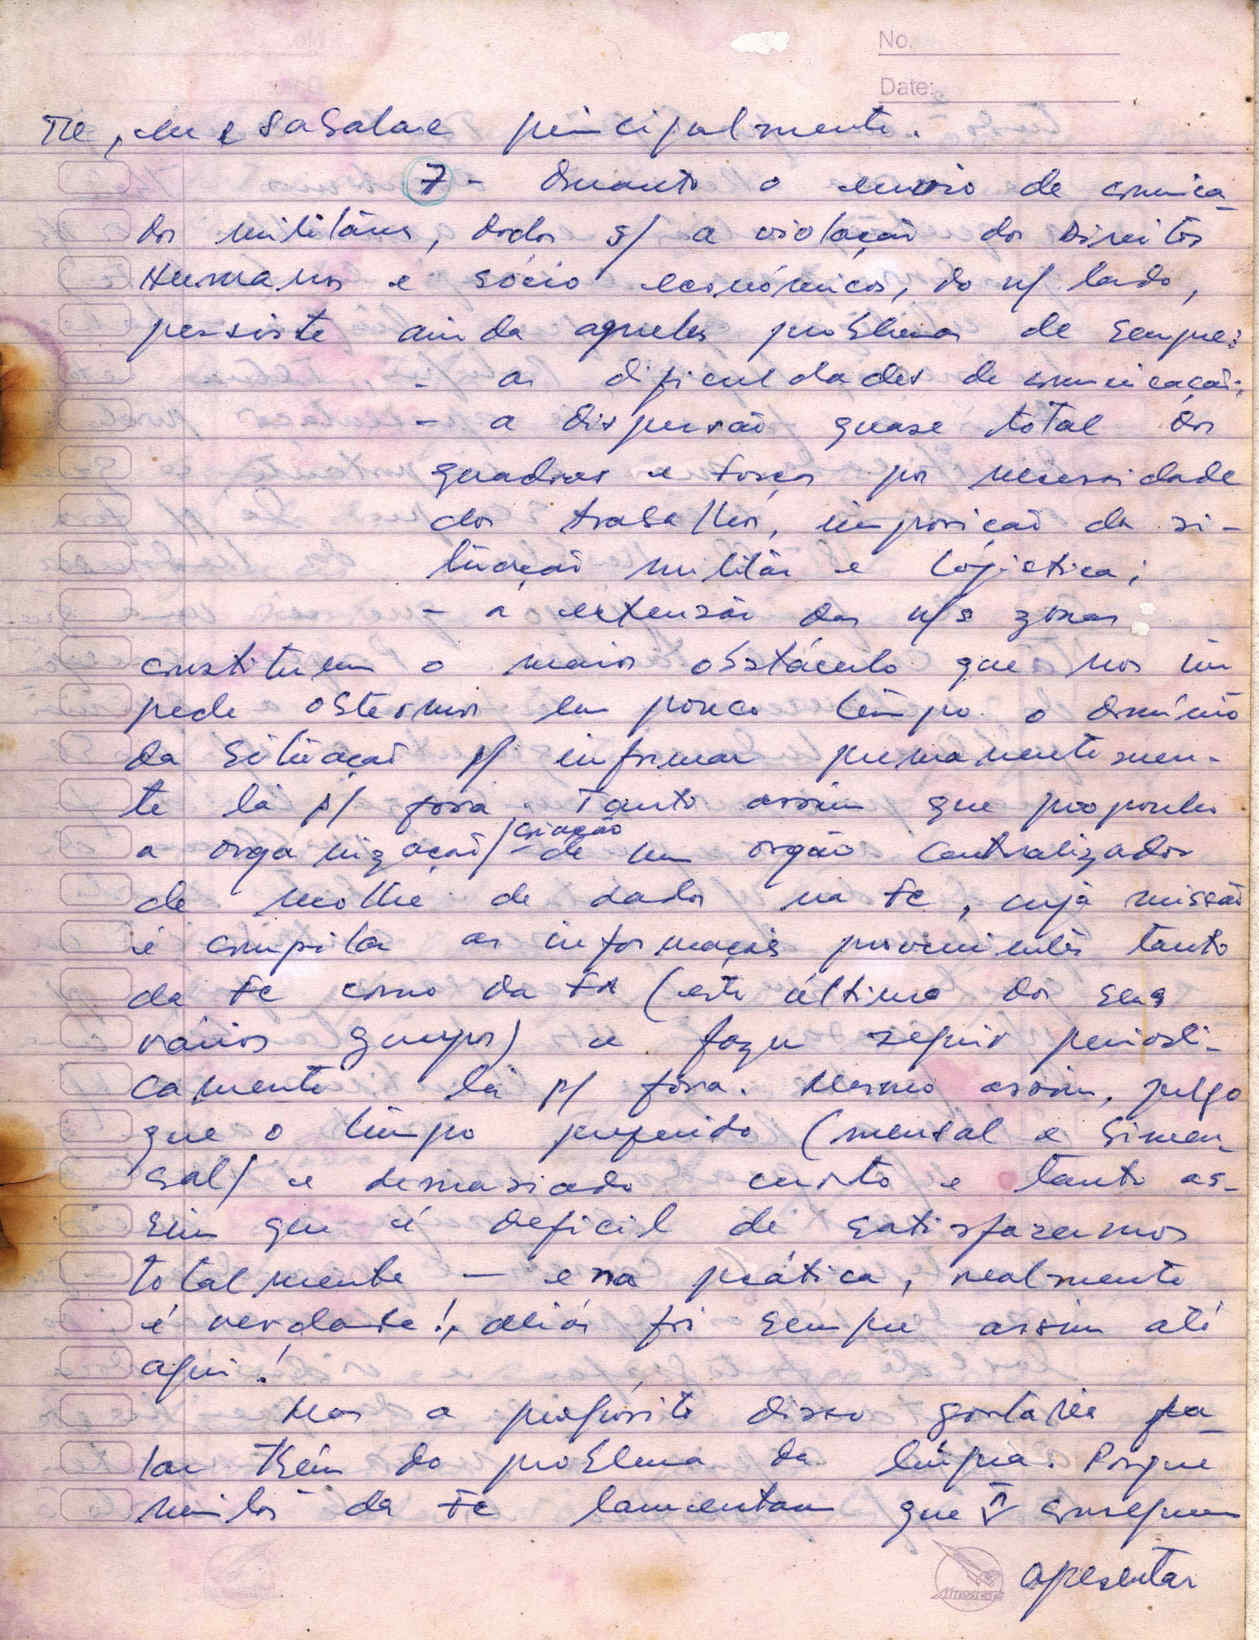 No.
Date:
principalmente.
7 - Quanto o envio de comunica
dos militáres, dados s/ a violação dos Direitos
Humanos e sócio económicos, do n/ lado,
persiste ainda aqueles problemas de sempre:
- as dificuldades de comunicação;
- a dispersão quase total dos
quadros e forças por necessidade
dos trabalhos, imposição da si-
tuação militár e logística;
- a extensão das n/s zonas
constituem o maior obstáculo que nos im
pede obtermos em pouco tempo o domínio
da situação p/ informar permanentemen-
te lá p/ fora. Tanto assim que proponho
a organização/criação de um orgão centralizador
de recolha de dados na FC, cuja missão
é compilar as informações provenientes tanto
da FC como da FA (este último dos seus
vários grupos) e fazer seguir periodi-
camente lá p/ fora. Mesmo assim, julgo
que o tempo preferido (mensal e bimen-
sal) e demasiado curto e tanto as-
sim que é deficil de satisfazermos
totalmente - e na prática, realmente
é verdade!, aliás foi sempre assim até
aqui!
Mas a propósito disso gostaria fa-
lar tbém do problema da língua. Porque
muitos da FC lamentam que ñ conseguem
apresentar